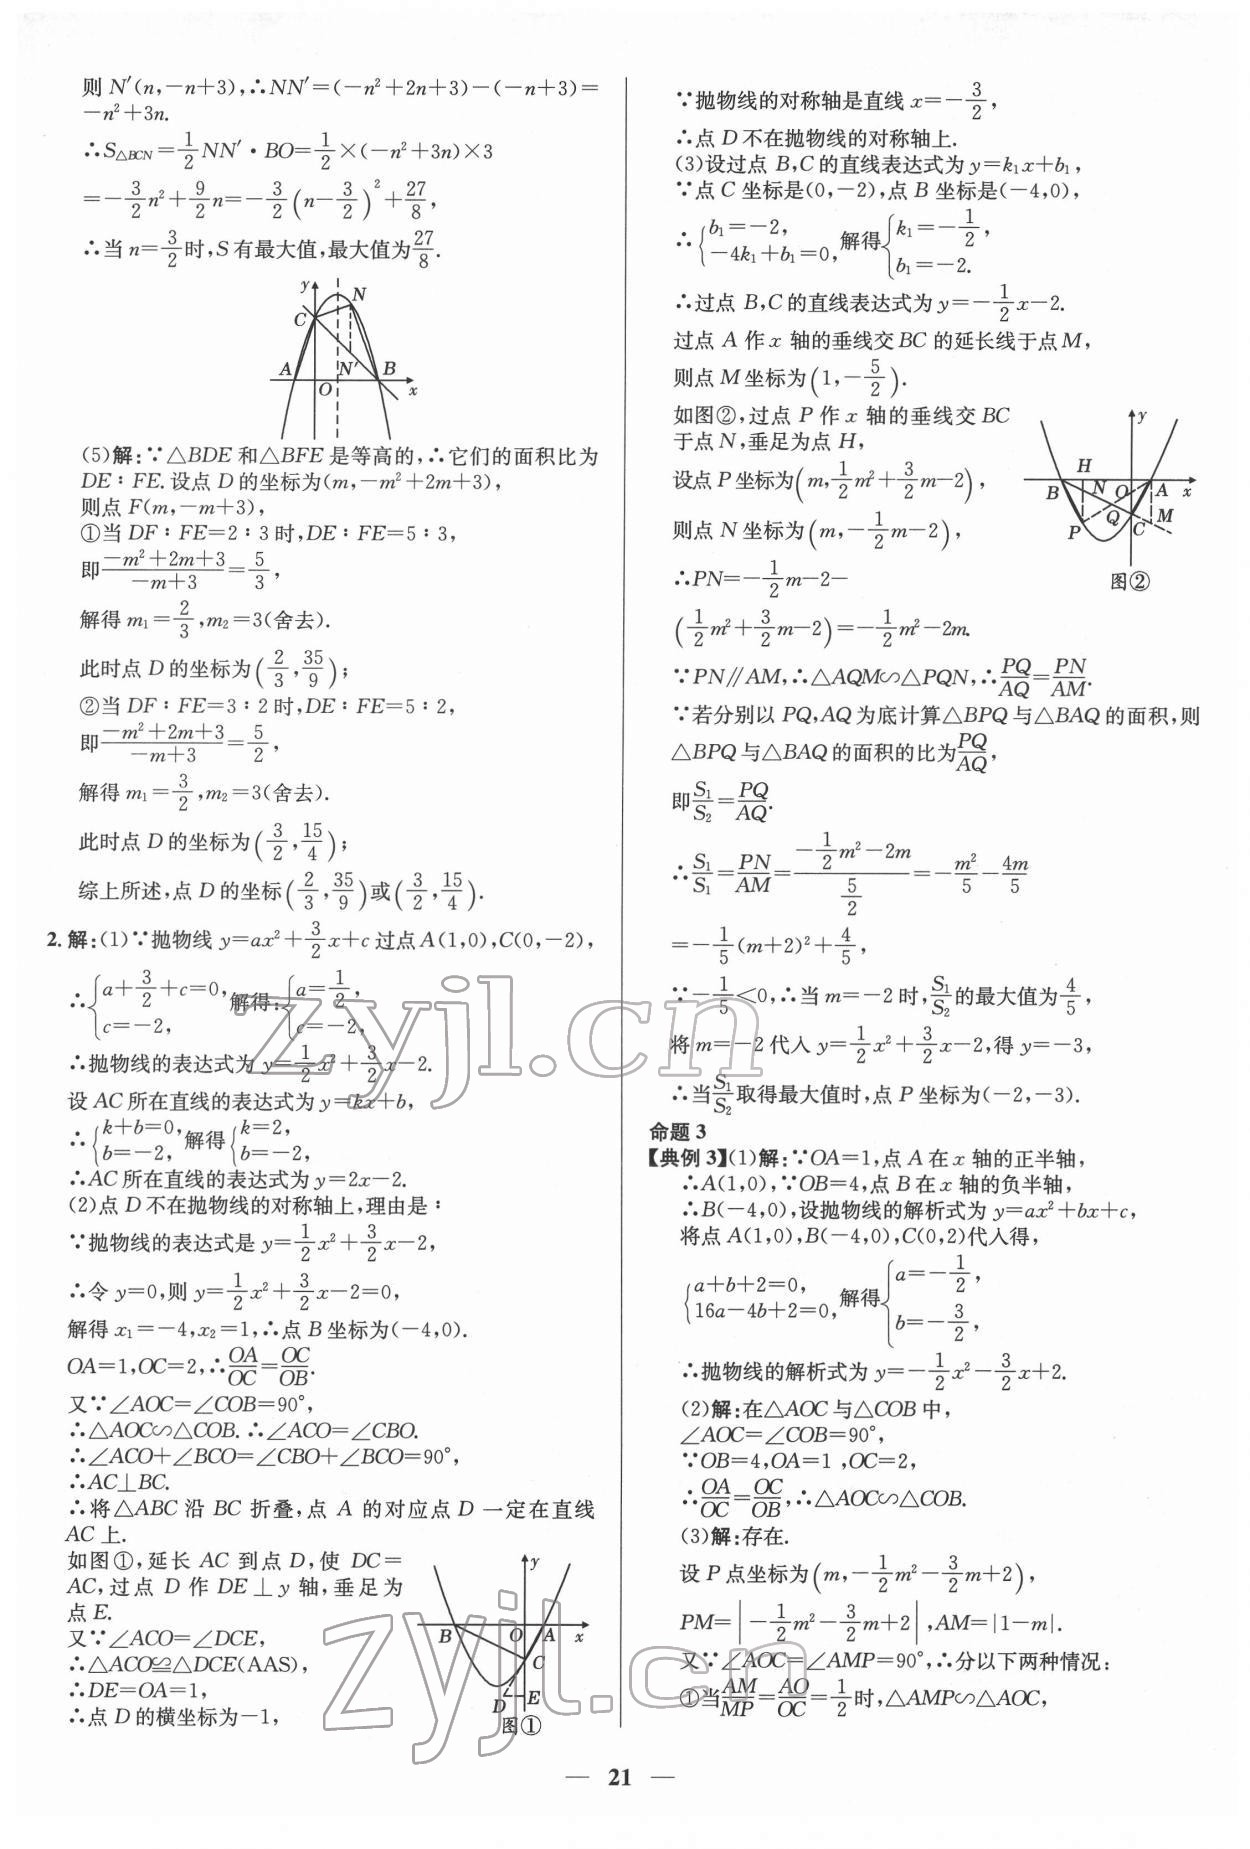 则 N′(n,−n+3),∴NN′=(−n²+2n+3)−(−n+3)=
−n²+3n.
∴S△BCN=1/2 NN′·BO=1/2×(−n²+3n)×3
=−3/2n²+9/2n=−3/2(n−3/2)²+27/8,
∴当 n=3/2时,S 有最大值,最大值为27/8.
y
N
C
A
N′
B
O
x
(5)解:∵△BDE 和△BFE 是等高的,∴它们的面积比为
DE∶FE.设点 D 的坐标为(m,−m²+2m+3),
则点 F(m,−m+3),
①当 DF∶FE=2∶3时,DE∶FE=5∶3,
即(−m²+2m+3)/(−m+3)=5/3,
解得 m₁=2/3,m₂=3(舍去).
此时点 D 的坐标为(2/3,35/9);
②当 DF∶FE=3∶2时,DE∶FE=5∶2,
即(−m²+2m+3)/(−m+3)=5/2,
解得 m₁=3/2,m₂=3(舍去).
此时点 D 的坐标为(3/2,15/4);
综上所述,点 D 的坐标(2/3,35/9)或(3/2,15/4).
2.解:(1)∵抛物线 y=ax²+3/2x+c 过点 A(1,0),C(0,−2),
∴{a+3/2+c=0, c=−2, 解得:{a=1/2, c=−2,
∴抛物线的表达式为 y=1/2x²+3/2x−2.
设 AC 所在直线的表达式为 y=kx+b,
∴{k+b=0, b=−2, 解得{k=2, b=−2,
∴AC 所在直线的表达式为 y=2x−2.
(2)点 D 不在抛物线的对称轴上,理由是:
∵抛物线的表达式是 y=1/2x²+3/2x−2,
∴令 y=0,则 y=1/2x²+3/2x−2=0,
解得 x₁=−4,x₂=1,∴点 B 坐标为(−4,0).
OA=1,OC=2,∴OA/OC=OC/OB.
又∵∠AOC=∠COB=90°,
∴△AOC∽△COB.∴∠ACO=∠CBO.
∴∠ACO+∠BCO=∠CBO+∠BCO=90°,
∴AC⊥BC.
∴将△ABC 沿 BC 折叠,点 A 的对应点 D 一定在直线
AC 上.
如图①,延长 AC 到点 D,使 DC=
AC,过点 D 作 DE⊥y 轴,垂足为
点 E.
又∵∠ACO=∠DCE,
∴△ACO≌△DCE(AAS),
∴DE=OA=1,
∴点 D 的横坐标为−1,
y
B
O
A
x
C
D
E
图①
∵抛物线的对称轴是直线 x=−3/2,
∴点 D 不在抛物线的对称轴上.
(3)设过点 B,C 的直线表达式为 y=k₁x+b₁,
∵点 C 坐标是(0,−2),点 B 坐标是(−4,0),
∴{b₁=−2, −4k₁+b₁=0, 解得{k₁=−1/2, b₁=−2.
∴过点 B,C 的直线表达式为 y=−1/2x−2.
过点 A 作 x 轴的垂线交 BC 的延长线于点 M,
则点 M 坐标为(1,−5/2).
如图②,过点 P 作 x 轴的垂线交 BC
于点 N,垂足为点 H,
设点 P 坐标为(m,1/2m²+3/2m−2),
则点 N 坐标为(m,−1/2m−2),
∴PN=−1/2m−2−
(1/2m²+3/2m−2)=−1/2m²−2m.
y
H
B
N
O
A
x
Q
M
P
C
图②
∵PN∥AM,∴△AQM∽△PQN,∴PQ/AQ=PN/AM.
∵若分别以 PQ,AQ 为底计算△BPQ 与△BAQ 的面积,则
△BPQ 与△BAQ 的面积的比为PQ/AQ,
即S₁/S₂=PQ/AQ.
∴S₁/S₁=PN/AM=(−1/2m²−2m)/(5/2)=−m²/5−4m/5
=−1/5(m+2)²+4/5,
∵−1/5<0,∴当 m=−2时,S₁/S₂的最大值为4/5,
将 m=−2代入 y=1/2x²+3/2x−2,得 y=−3,
∴当S₁/S₂取得最大值时,点 P 坐标为(−2,−3).
命题3
【典例3】(1)解:∵OA=1,点 A 在 x 轴的正半轴,
∴A(1,0),∵OB=4,点 B 在 x 轴的负半轴,
∴B(−4,0),设抛物线的解析式为 y=ax²+bx+c,
将点 A(1,0),B(−4,0),C(0,2)代入得,
{a+b+2=0, 16a−4b+2=0, 解得{a=−1/2, b=−3/2,
∴抛物线的解析式为 y=−1/2x²−3/2x+2.
(2)解:在△AOC 与△COB 中,
∠AOC=∠COB=90°,
∵OB=4,OA=1,OC=2,
∴OA/OC=OC/OB,∴△AOC∽△COB.
(3)解:存在.
设 P 点坐标为(m,−1/2m²−3/2m+2),
PM=|−1/2m²−3/2m+2|,AM=|1−m|.
又∵∠AOC=∠AMP=90°,∴分以下两种情况:
①当AM/MP=AO/OC=1/2时,△AMP∽△AOC,
zyjl.cn
zyjl.cn
— 21 —